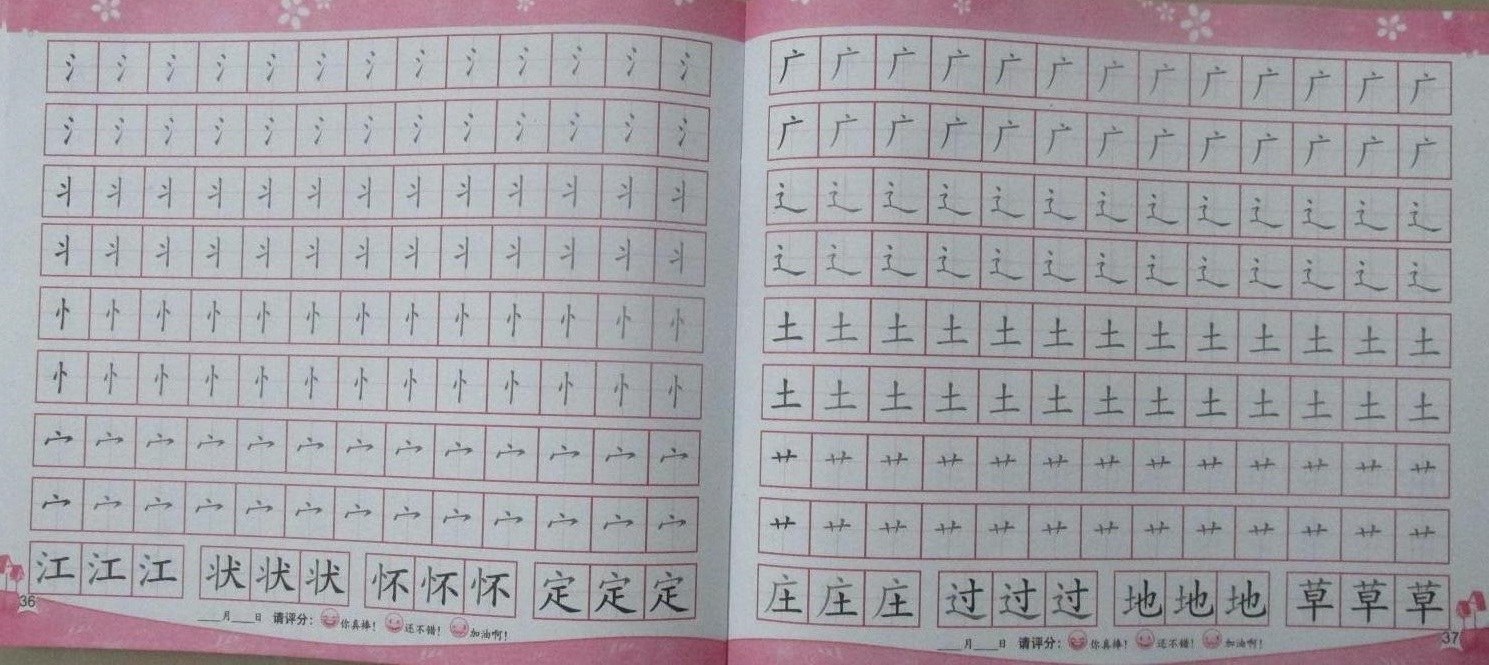 氵氵氵氵氵氵氵氵氵氵氵氵氵
氵氵氵氵氵氵氵氵氵氵氵氵氵
丬丬丬丬丬丬丬丬丬丬丬丬丬
丬丬丬丬丬丬丬丬丬丬丬丬丬
忄忄忄忄忄忄忄忄忄忄忄忄忄
忄忄忄忄忄忄忄忄忄忄忄忄忄
宀宀宀宀宀宀宀宀宀宀宀宀宀
宀宀宀宀宀宀宀宀宀宀宀宀宀
江江江 状状状 怀怀怀 定定定
36 ___月___日 请评分： 你真棒！ 还不错！ 加油啊！
广广广广广广广广广广广广广
广广广广广广广广广广广广广
辶辶辶辶辶辶辶辶辶辶辶辶辶
辶辶辶辶辶辶辶辶辶辶辶辶辶
土土土土土土土土土土土土土
土土土土土土土土土土土土土
艹艹艹艹艹艹艹艹艹艹艹艹艹
艹艹艹艹艹艹艹艹艹艹艹艹艹
庄庄庄 过过过 地地地 草草草
___月___日 请评分： 你真棒！ 还不错！ 加油啊！ 37